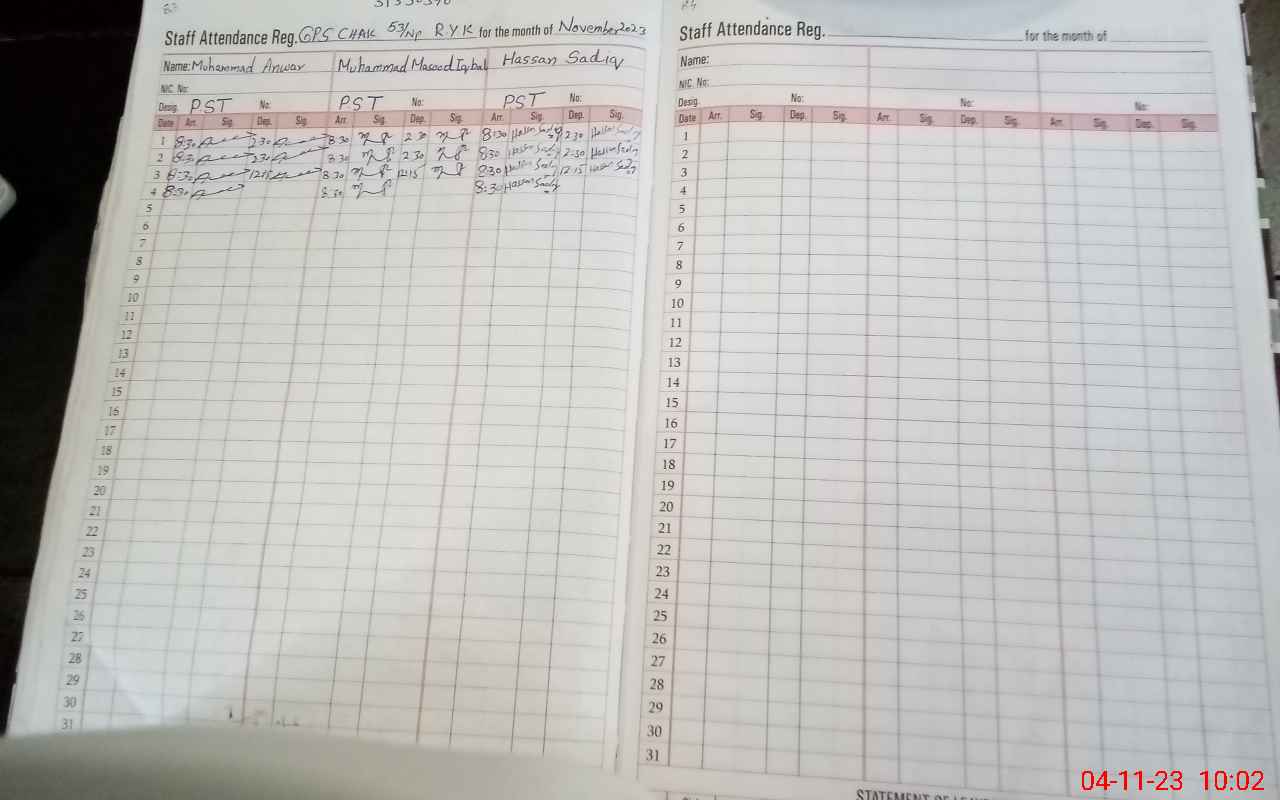 83
Staff Attendance Reg. GPS CHAK 53/NP R.Y.K for the month of November 2023
Name: Muhammad Anwar Muhammad Masood Iqbal Hassan Sadiq
NIC. No:
Desig. PST No: PST No: PST No:
Date Arr. Sig. Dep. Sig. Arr. Sig. Dep. Sig. Arr. Sig. Dep. Sig.
1 8:30 2:30 8:30 2:30 8:30 Hassan Sadiq 2:30 Hassan Sadiq
2 8:30 2:30 8:30 2:30 8:30 Hassan Sadiq 2:30 Hassan Sadiq
3 8:30 12:15 8:30 12:15 8:30 Hassan Sadiq 12:15 Hassan Sadiq
4 8:30 8:30 8:30 Hassan Sadiq
5
6
7
8
9
10
11
12
13
14
15
16
17
18
19
20
21
22
23
24
25
26
27
28
29
30
31
84
Staff Attendance Reg. for the month of
Name:
NIC. No:
Desig. No: No: No:
Date Arr. Sig. Dep. Sig. Arr. Sig. Dep. Sig. Arr. Sig. Dep. Sig.
1
2
3
4
5
6
7
8
9
10
11
12
13
14
15
16
17
18
19
20
21
22
23
24
25
26
27
28
29
30
31
04-11-23 10:02
STATEMENT OF